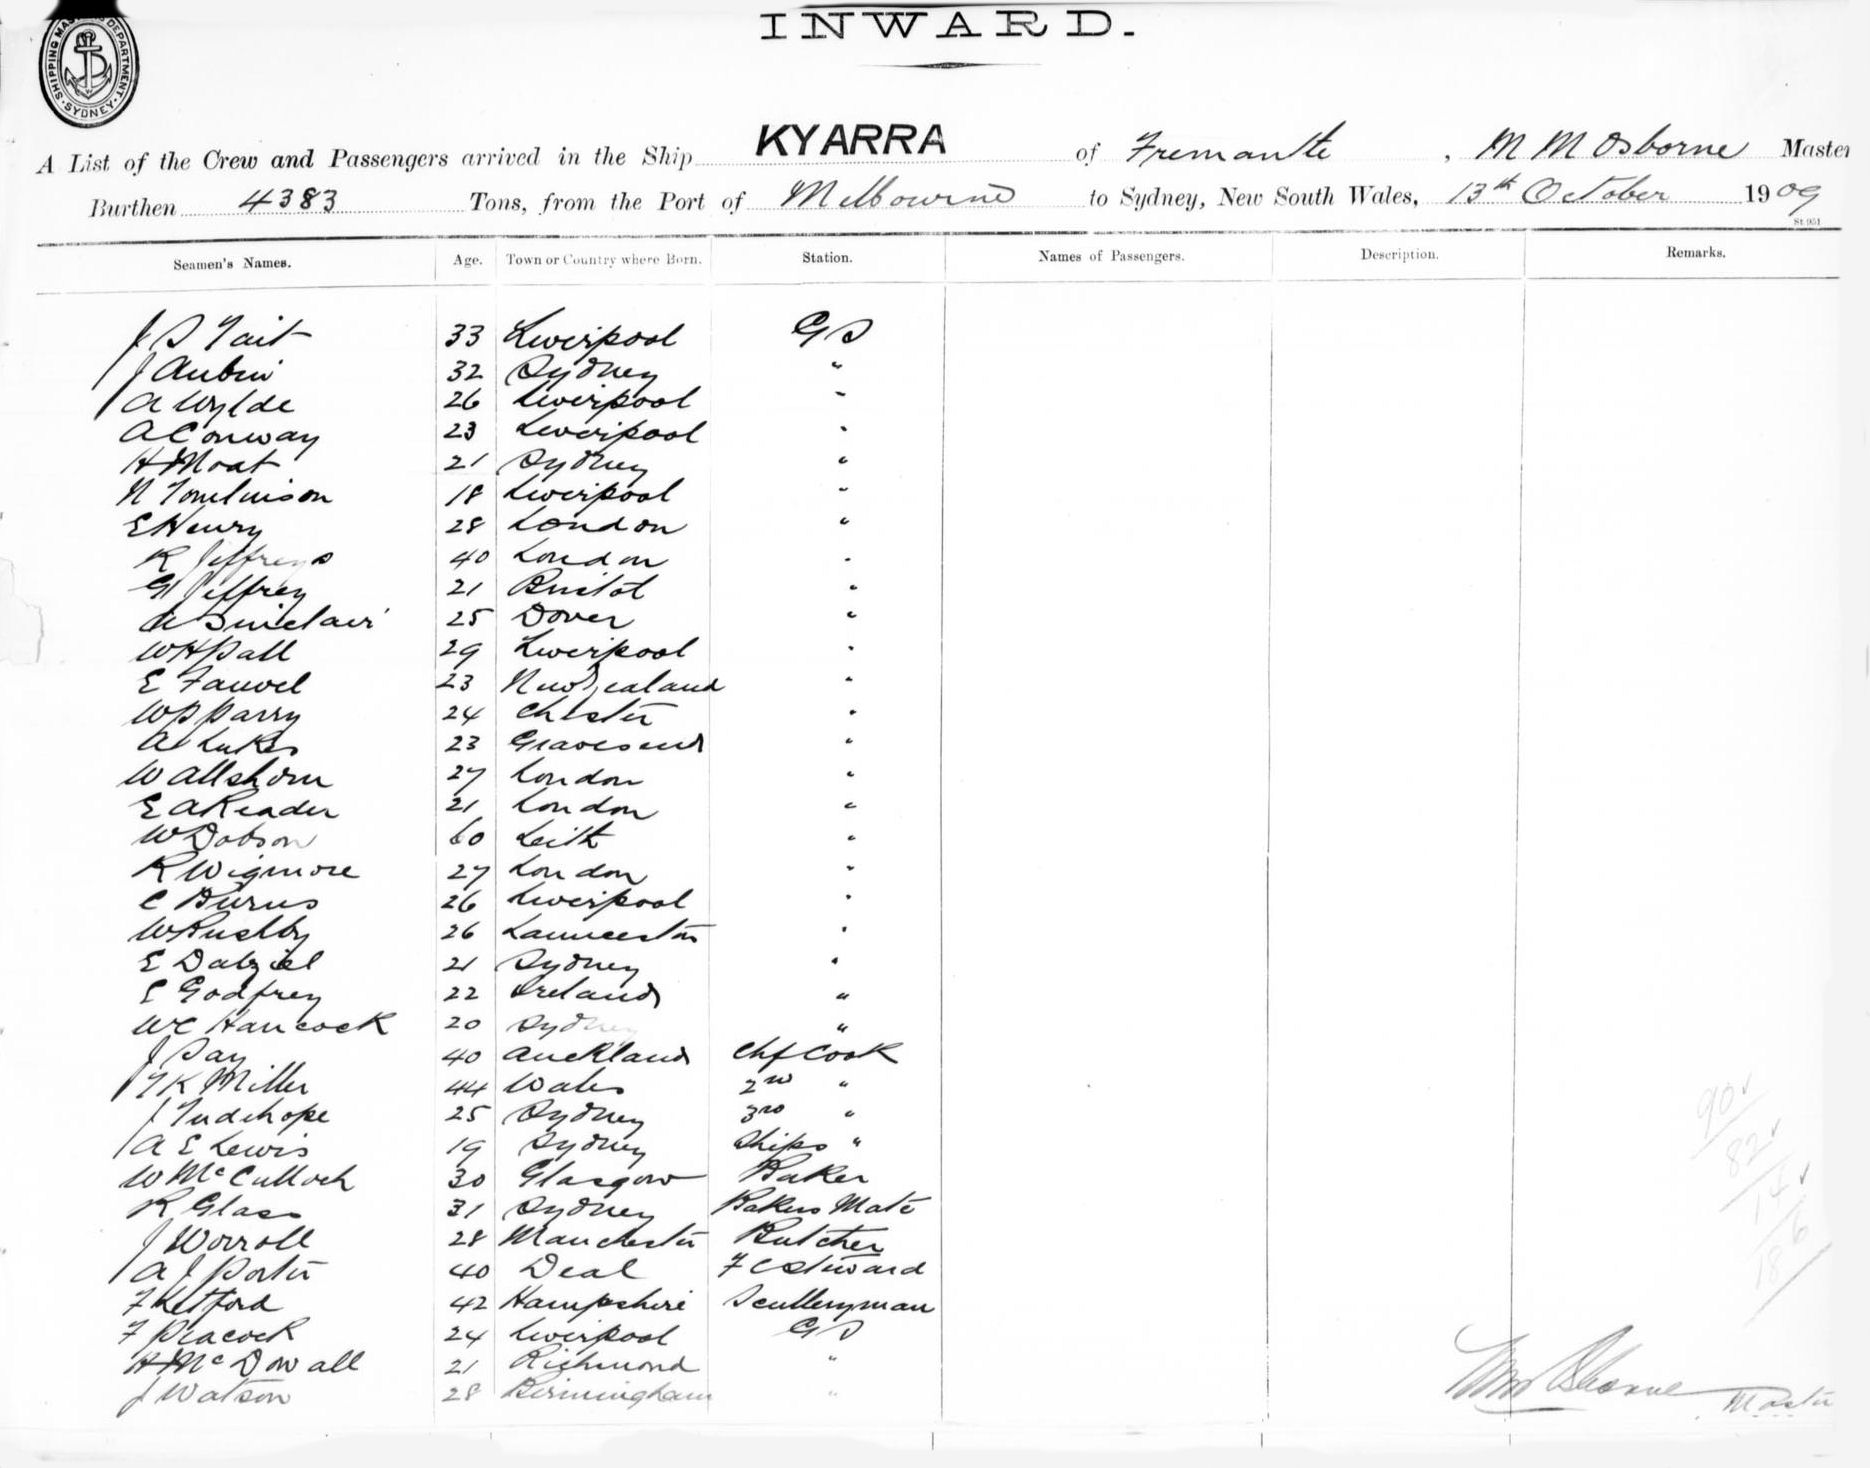 SHIPPING MASTER'S DEPARTMENT
SYDNEY
INWARD.
A List of the Crew and Passengers arrived in the Ship KYARRA of Fremantle, M M Osborne Master
Burthen 4383 Tons, from the Port of Melbourne to Sydney, New South Wales, 13th October 1909
St 951
Seamen's Names. Age. Town or Country where Born. Station. Names of Passengers. Description. Remarks.
J S Tait 33 Liverpool GS
J Aubin 32 Sydney "
A Wylde 26 Liverpool "
A Conway 23 Liverpool "
H Moat 21 Sydney "
N Tomlinson 18 Liverpool "
E Henry 28 London "
R Jeffreys 40 London "
G Jeffrey 21 Bristol "
A Sinclair 25 Dover "
W H Pall 29 Liverpool "
E Fauvel 23 New Zealand "
W P Parry 24 Chester "
A Lukes 23 Gravesend "
W Allshorn 27 London "
E A Reader 21 London "
W Dobson 60 Leith "
R Wigmore 27 London "
C Burns 26 Liverpool "
W Rushby 26 Launceston "
E Dalziel 21 Sydney "
E Godfrey 22 Ireland "
W C Hancock 20 Sydney "
J Day 40 Auckland Chf Cook
T K Miller 44 Wales 2nd "
J Tudehope 25 Sydney 3rd "
A E Lewis 19 Sydney Ships "
W McCulloch 30 Glasgow Baker
R Glass 31 Sydney Bakers Mate
J Worrall 28 Manchester Butcher
A J Porter 40 Deal F C Steward
F Ketford 42 Hampshire Sculleryman
F Peacock 24 Liverpool GS
H McDowall 21 Richmond "
J Watson 28 Birmingham "
90
82
14
186
M M Osborne Master